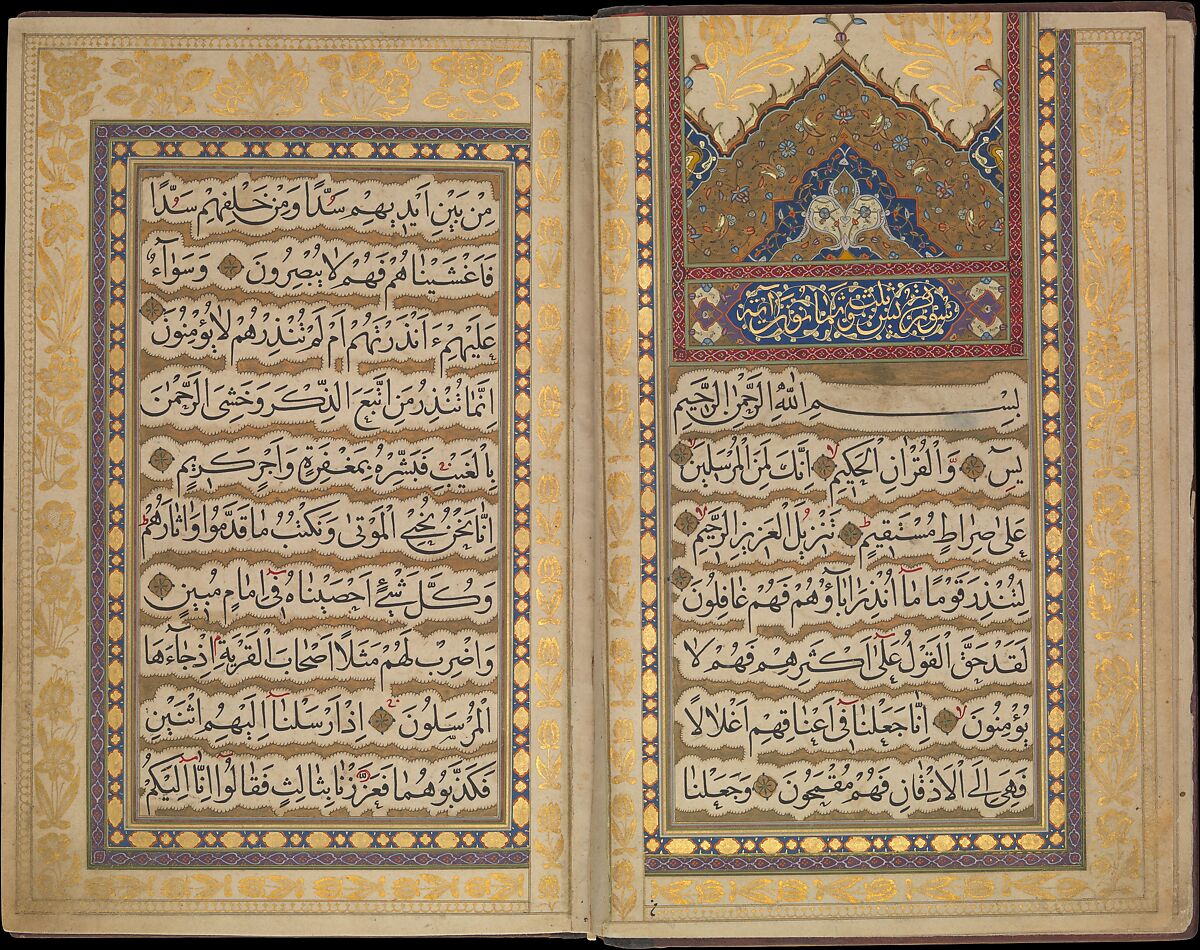 سورة يس ثلث وثمانون آية
بِسْمِ اللّٰهِ الرَّحْمٰنِ الرَّحِيمِ
يٰسۤ وَالْقُرْاٰنِ الْحَكِيمِ اِنَّكَ لَمِنَ الْمُرْسَلِينَ
عَلٰى صِرَاطٍ مُسْتَقِيمٍ تَنْزِيلَ الْعَزِيزِ الرَّحِيمِ
لِتُنْذِرَ قَوْمًا مَا اُنْذِرَ اٰبَاؤُهُمْ فَهُمْ غَافِلُونَ
لَقَدْ حَقَّ الْقَوْلُ عَلٰى اَكْثَرِهِمْ فَهُمْ لَا
يُؤْمِنُونَ اِنَّا جَعَلْنَا فِى اَعْنَاقِهِمْ اَغْلَالًا
فَهِىَ اِلَى الْاَذْقَانِ فَهُمْ مُقْمَحُونَ وَجَعَلْنَا
مِنْ بَيْنِ اَيْدِيهِمْ سَدًّا وَمِنْ خَلْفِهِمْ سَدًّا
فَاَغْشَيْنَاهُمْ فَهُمْ لَا يُبْصِرُونَ وَسَوَاۤءٌ
عَلَيْهِمْ ءَاَنْذَرْتَهُمْ اَمْ لَمْ تُنْذِرْهُمْ لَا يُؤْمِنُونَ
اِنَّمَا تُنْذِرُ مَنِ اتَّبَعَ الذِّكْرَ وَخَشِىَ الرَّحْمٰنَ
بِالْغَيْبِ فَبَشِّرْهُ بِمَغْفِرَةٍ وَاَجْرٍ كَرِيمٍ
اِنَّا نَحْنُ نُحْيِى الْمَوْتٰى وَنَكْتُبُ مَا قَدَّمُوا وَاٰثَارَهُمْ
وَكُلَّ شَىْءٍ اَحْصَيْنَاهُ فِى اِمَامٍ مُبِينٍ
وَاضْرِبْ لَهُمْ مَثَلًا اَصْحَابَ الْقَرْيَةِ اِذْ جَاۤءَهَا
الْمُرْسَلُونَ اِذْ اَرْسَلْنَا اِلَيْهِمُ اثْنَيْنِ
فَكَذَّبُوهُمَا فَعَزَّزْنَا بِثَالِثٍ فَقَالُوا اِنَّا اِلَيْكُمْ